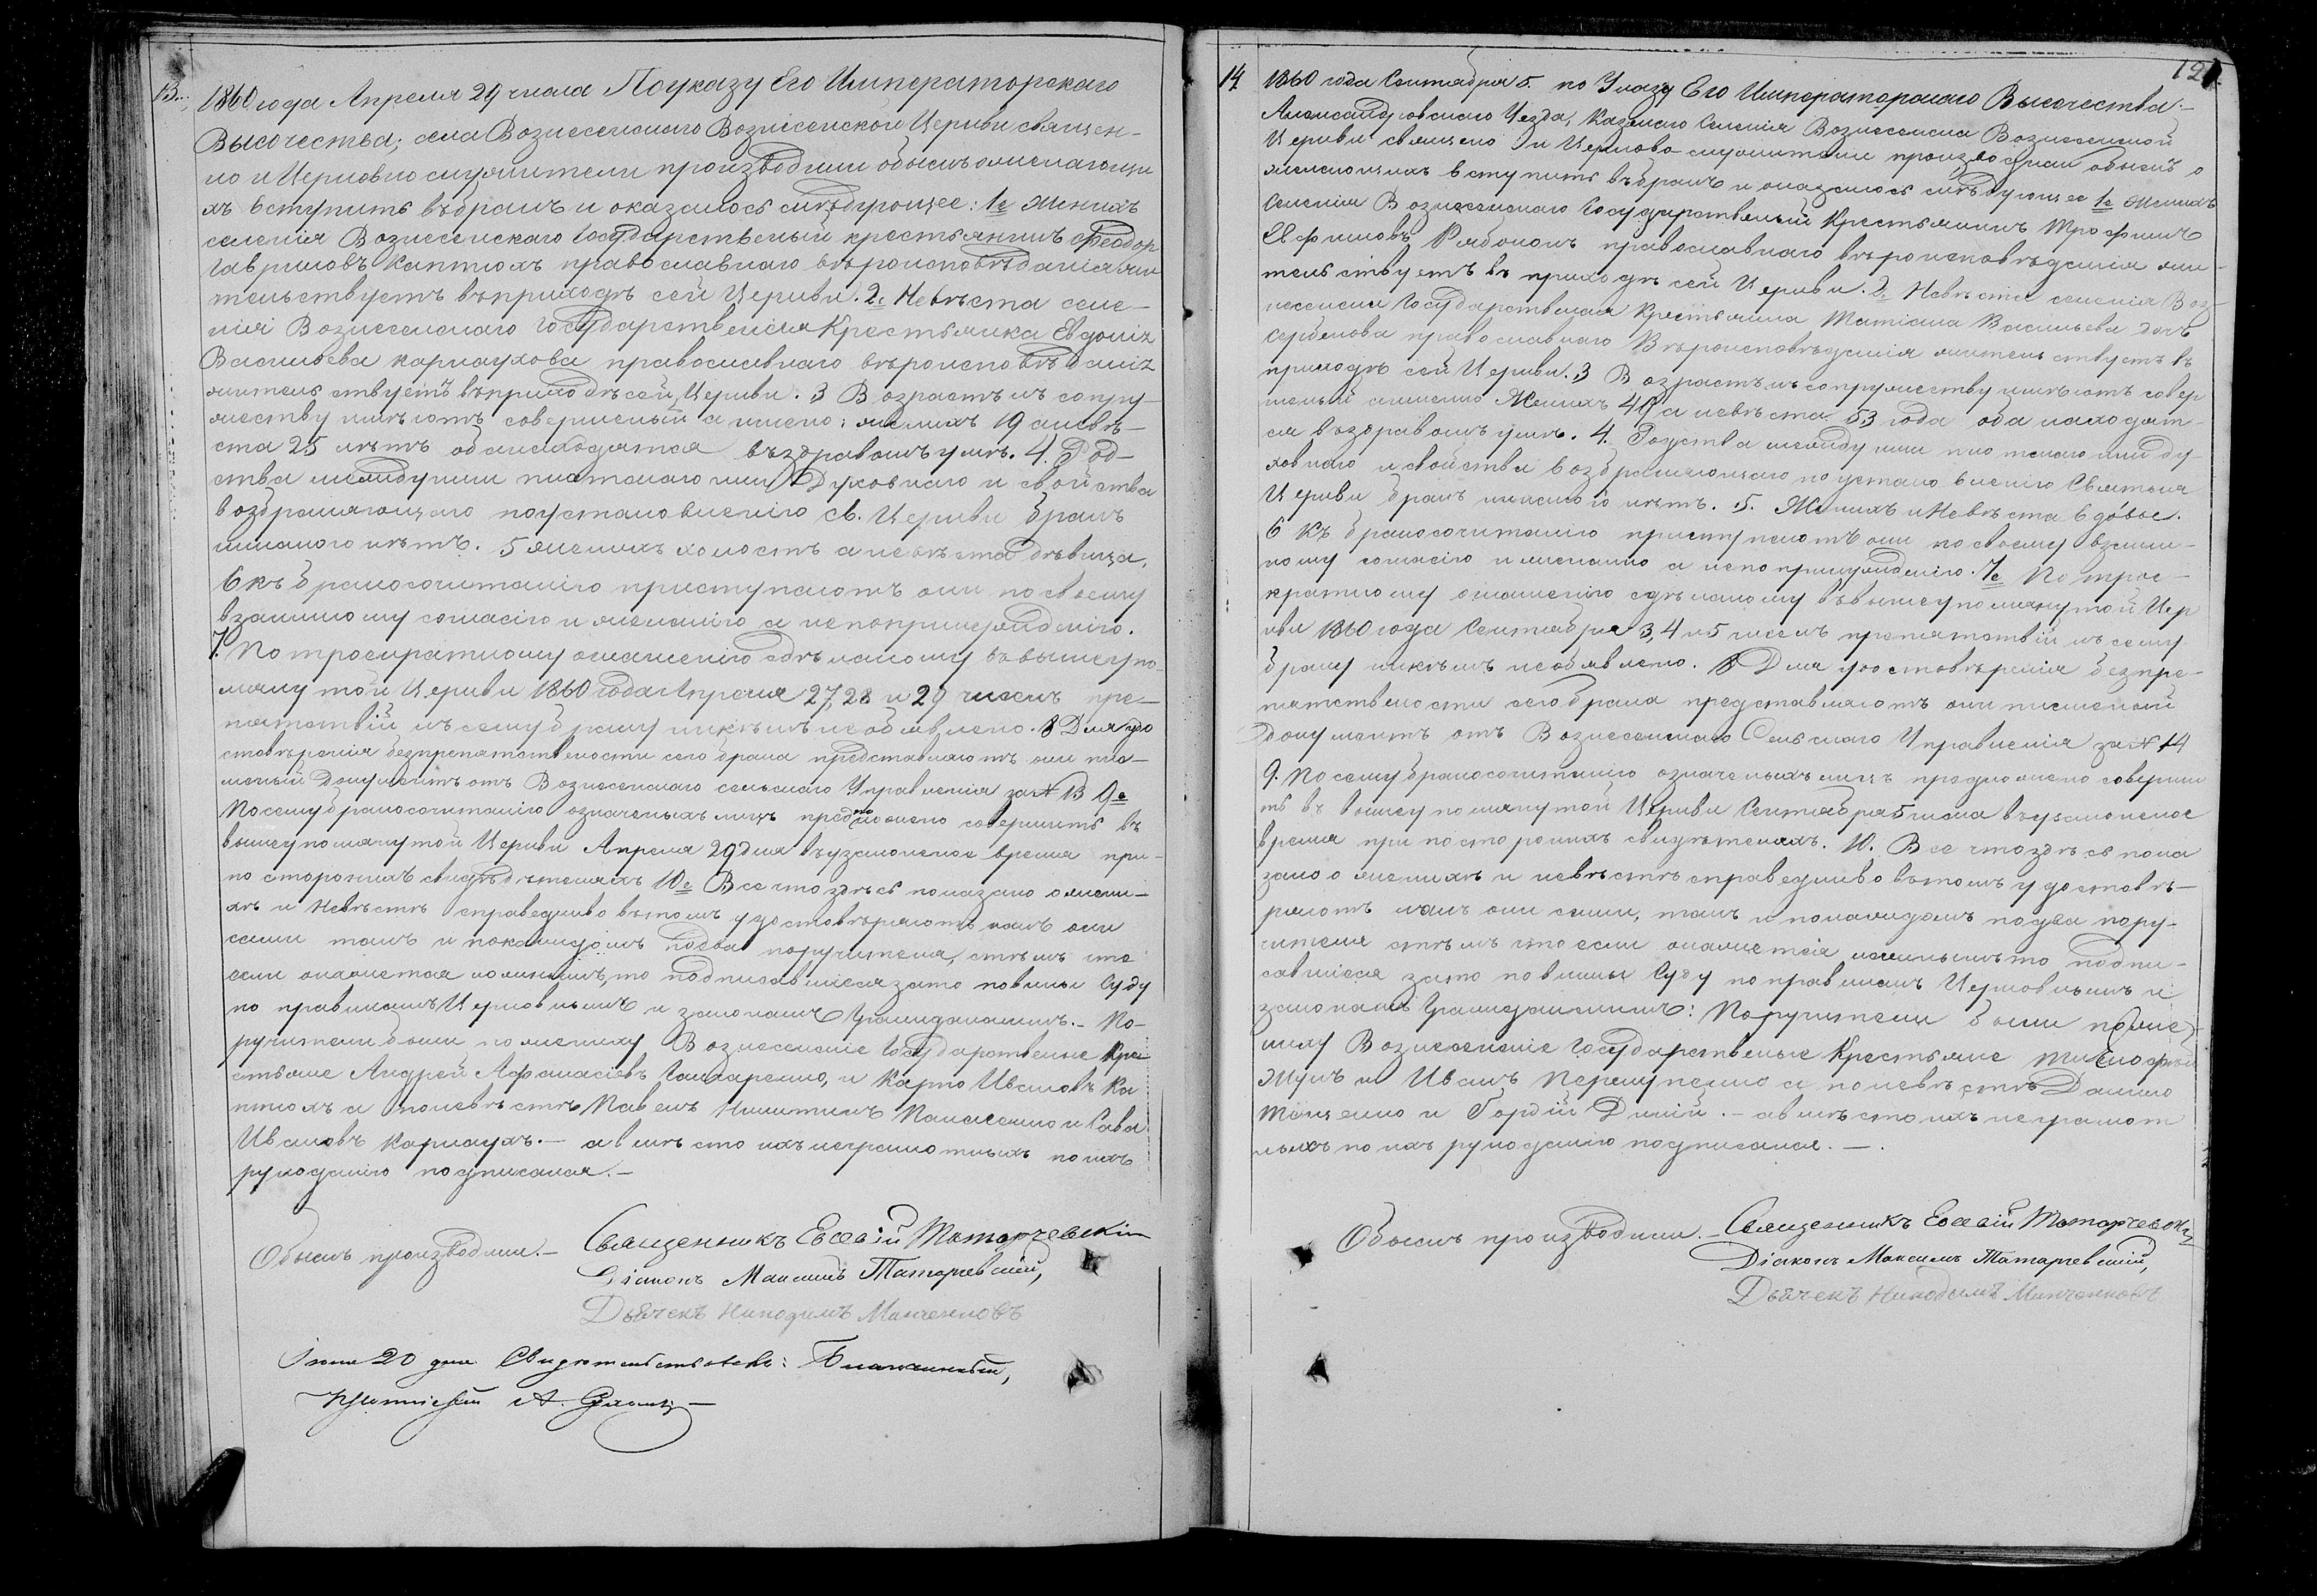 13.
1860 года Апреля 29 числа Поуказу Его Императорскаго
Высочества; села Вознесенскаго Вознесенской Церкви священ-
но и Церковно служители производили обыскъ ожелающи
хъ вступить въбракъ и оказалось слѣдующее: 1е Женихъ
селенія Вознесенскаго Государственый крестьянинъ Феодор
Гавриловъ Каптюхъ православнаго вѣроисповѣданія жи
тельствуетъ въприходѣ сей Церкви. 2е Невѣста селе-
нія Вознесенскаго Государственая Крестьянка Евдокія
Васильева карнаухова православнаго вѣроисповѣданія
жительствуетъ въприходѣ сей Церкви. 3 Возрастъ къ супру-
жеству имѣютъ совершеный а имено: женихъ 19 а невѣ-
ста 25 лѣтъ оба находятся въздравомъ умѣ. 4. Род-
ства между ими плотскаго или Духовнаго и свойства
возбраняющаго поустановленію св. Церкви бракъ
никакого нѣтъ. 5 женихъ холостъ а невѣста дѣвица,
6 къ бракосочитанію приступаютъ они по своему
взаимному согласію и желанію а непопринужденію.
7. По троекратному оглашенію сдѣланому въ вышеупо-
мянутой Церкви 1860 года Апреля 27, 28 и 29 чиселъ пре-
пятствій къ сему браку никѣмъ необявлено. 8 Для удо
стовѣренія безпрепятствености сего брака представляютъ они пис-
меный Документъ отъ Вознесенскаго сельскаго Управленія за № 13 9е
Посему бракосочитанію означеныхъ лицъ предположено совершить въ
вышеупомянутой Церкви Апреля 29 дня въузаконеное время при
постороннихъ свидѣтеляхъ 10е Все что здѣсь показано о жени-
хѣ и Невѣстѣ справедливо вътомъ удостовѣряютъ какъ они
сами такъ и покаждомъ подва поручителя, стѣмъ что
если окажется ложнымъ, то подписавшіеся зато повины Суду
по правиламъ Церковнымъ и законамъ Гражданскимъ. – По-
ручители были по жениху Вознесенскіе Государственые Кре
стьяне Андрей Афанасіевъ Гандаренко, и Карпо Ивановъ Ка
птюхъ а поневѣстѣ Павелъ Никитинъ Панасенко и Сава
Ивановъ Карнаухъ. – а вмѣсто ихъ неграмотныхъ по ихъ
рукоданію подписался. –
Обыскъ производили. – Священникъ Евсевій Татарчевскій
Діаконъ Максимъ Татарчевскій,
Дьячекъ Никодимъ Манченковъ
20 дня Свидетельствовалъ: Благочинный,
А.
121.
14
1860 года Сентября 5. по Указу Его Императорскаго Высочества. –
Александровскаго Уезда, Казенаго Селенія Вознесенска Вознесенской
Церкви священо и Церково-служители производили обыскъ о
желающихъ вступить въбракъ и оказалось слѣдующее 1е Женихъ
Селенія Вознесенскаго Государственый Крестьянинъ Трофимъ
Евфимовъ Рябоконь православнаго вѣроисповѣданія жи-
тельствуетъ въ приходѣ сей Церкви. 2е Невѣста селенія Воз-
несенска Государственая Крестьянка Татіана Васильева дочь
Сербенова православнаго Вѣроисповѣданія жительствуетъ въ
приходѣ сей Церкви. 3 Возрастъ къ супружеству имѣютъ совер
шеный аимено Женихъ 48 а невѣста 53 года оба находят-
ся въздравомъ умѣ. 4. Родства между ими плотскаго или ду-
ховнаго и свойства возбраняющаго поустановленію Святыя
Церкви бракъ никакого нѣтъ. 5. Женихъ и Невѣста вдовые.
6 Къ бракосочитанію приступаютъ они посвоему взаим-
ному согласію и желанію а непопринужденію. 7е По трое-
кратному оглашенію сдѣланому въвышеупомянутой Цер
кви 1860 года Сентября 3, 4 и 5 чиселъ препятствій къ сему
браку никѣмъ необявлено. 8 Для удостовѣренія безпре-
пятствености сего брака представляютъ они писменый
документъ отъ Вознесенскаго Сельскаго Управленія за № 14
9. Посему бракосочитанію означеныхъ лицъ предположено соверши
ть въ вышеупомянутой Церкви Сентября 5 числа въузаконеное
время при посторонихъ свидѣтеляхъ. 10. Все что здѣсь пока
зано о женихѣ и невѣстѣ справедливо вътомъ удостовѣ-
ряютъ какъ они сами, такъ и покаждомъ подва пору-
чителя стѣмъ что если окажется ложнымъ то подпи-
савшіеся зато повины Суду по правиламъ Церковнымъ и
законамъ Гражданскимъ: Поручители были по же-
ниху Вознесенскіе Государственые Крестьяне Тимофей
Жукъ и Иванъ Перепупенко а поневѣстѣ Данило
Тоценко и Гордій Дикій. – а вмѣсто ихъ неграмот
ныхъ по ихъ рукоданію подписался. –.
Обыскъ производили. – Священникъ Евсевій Татарчевскій
Діаконъ Максимъ Татарчевскій,
Дьячекъ Никодимъ Манченковъ